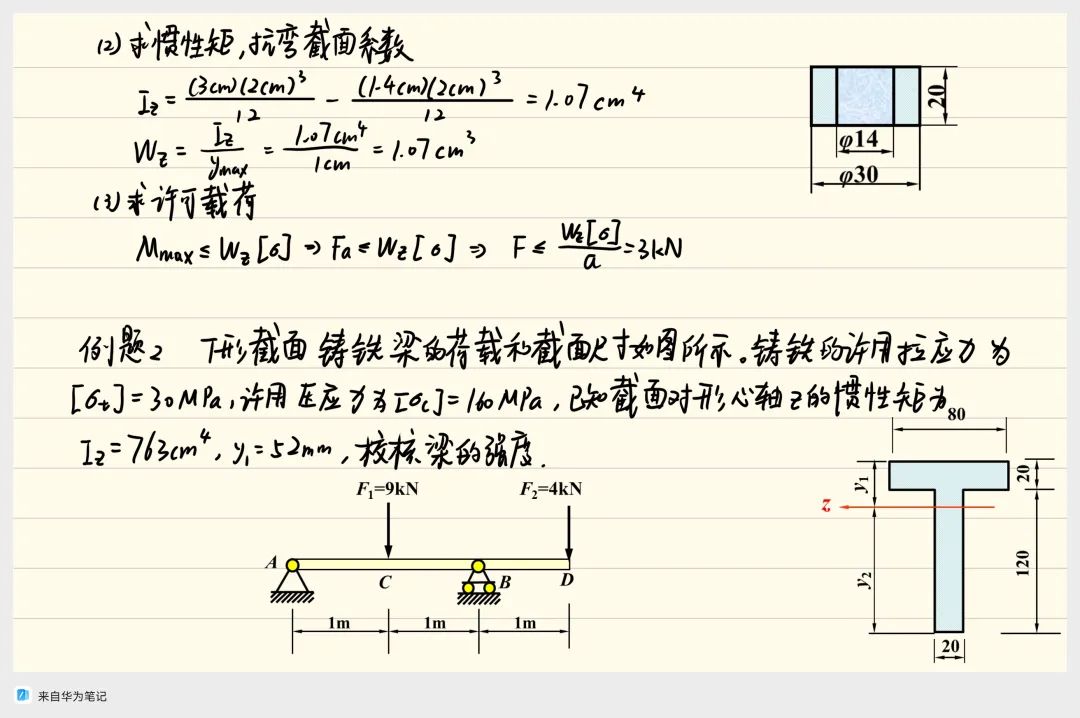 (2) 求惯性矩,抗弯截面系数
I_z = (3cm)(2cm)³/12 - (1.4cm)(2cm)³/12 = 1.07cm⁴
W_z = I_z/y_max = 1.07cm⁴/1cm = 1.07cm³
(3) 求许可载荷
M_max ≤ W_z[σ] ⇒ Fa ≤ W_z[σ] ⇒ F ≤ W_z[σ]/a = 3kN
20
φ14
φ30
例题2 T形截面铸铁梁的荷载和截面尺寸如图所示。铸铁的许用拉应力为
[σ_t]=30MPa,许用压应力为[σ_c]=160MPa,已知截面对形心轴z的惯性矩为
I_z=763cm⁴,y₁=52mm,校核梁的强度.
F₁=9kN
F₂=4kN
A
C
B
D
1m
1m
1m
80
y₁
20
z
y₂
120
20
来自华为笔记